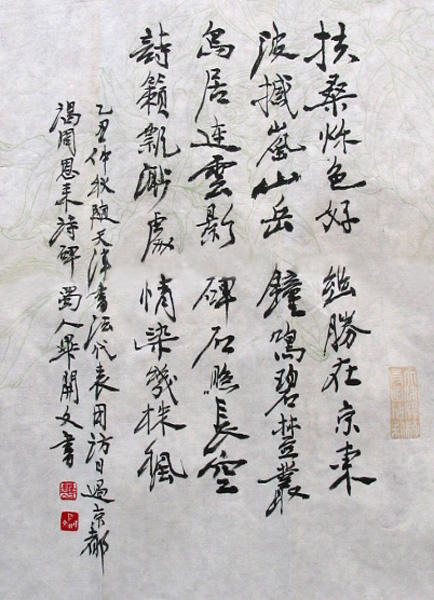 扶桑秋色好 幽勝在京東
波撼嵐山岳 鐘鳴碧樹叢
鳥居連雲影 碑石 長空
詩籟飄渺處 情染幾株楓
乙丑仲秋随天津書法代表团訪日過京都
謁周恩来詩碑 蜀人畢開文書